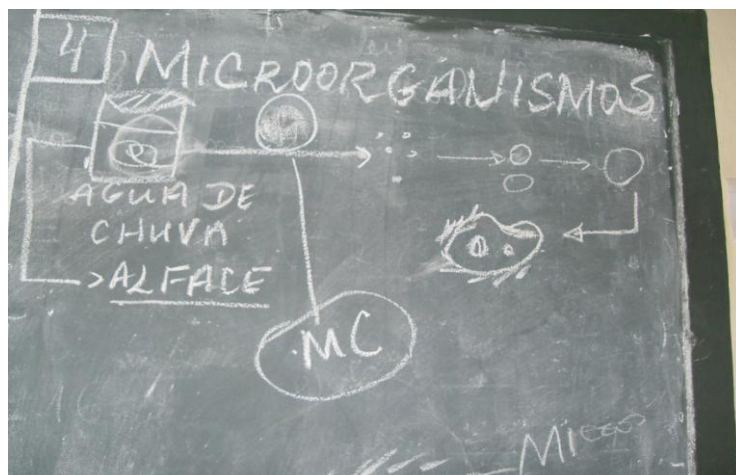 4 MICROORGANISMOS
AGUA DE
CHUVA
>ALFACE
.MC